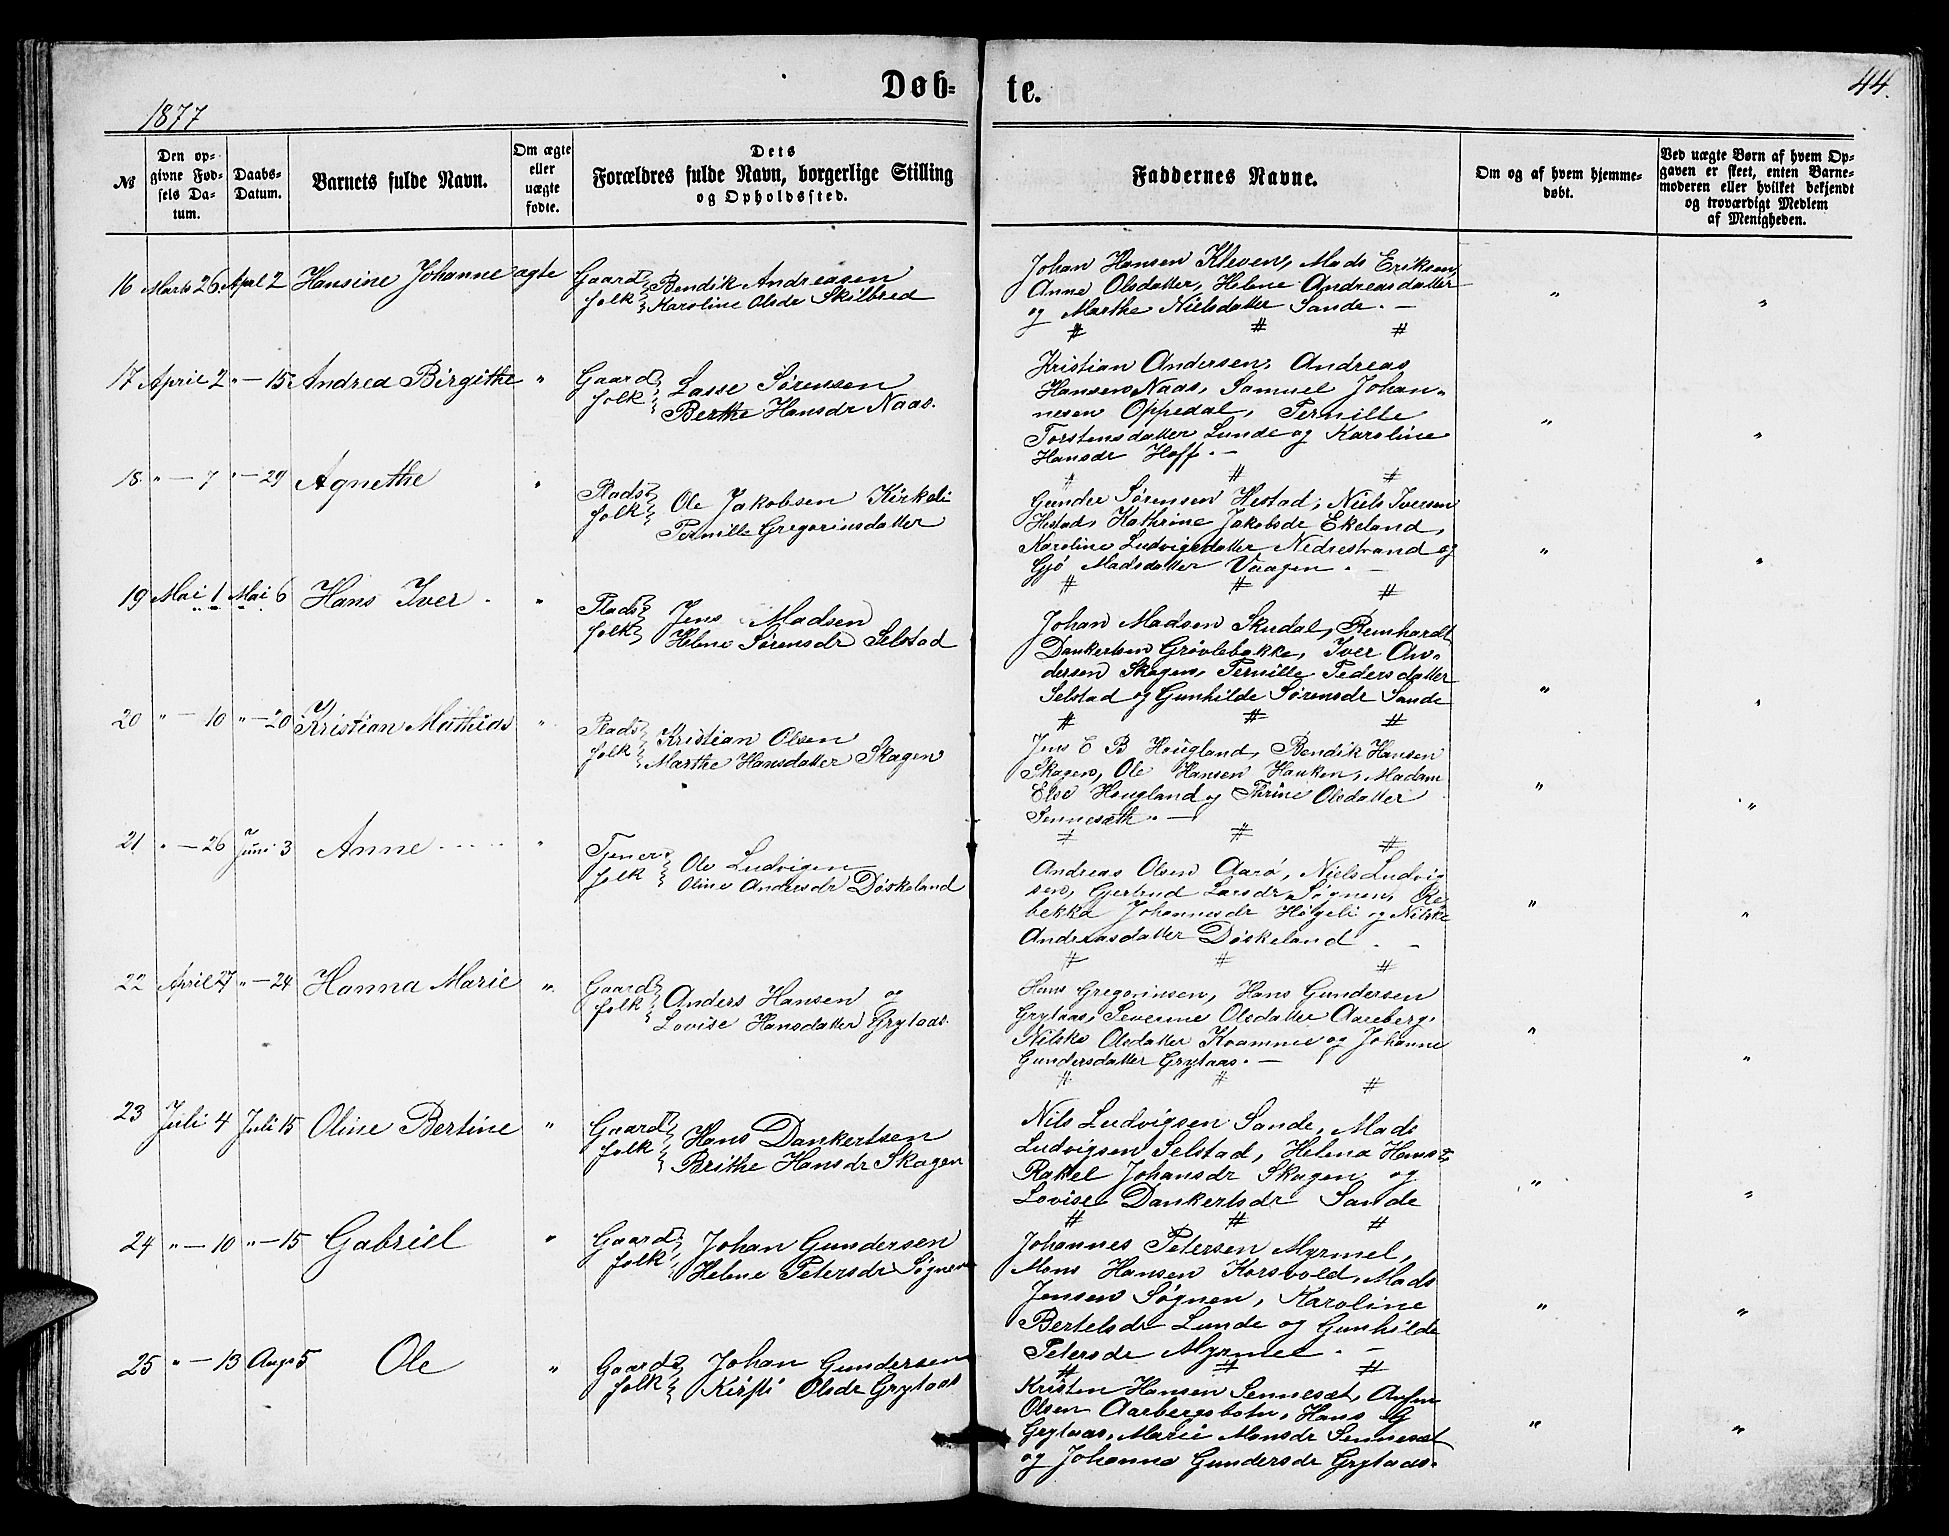 1877
Døb-
te.
44.
№
Den opgivne Fødsels Datum.
Daabs-Datum.
Barnets fulde Navn.
Om ægte eller uægte fødte.
Dets
Forældres fulde Navn, borgerlige Stilling
og Opholdssted.
Faddernes Navne.
Om og af hvem hjemmedøbt.
Ved uægte Børn af hvem Opgaven er skeet, enten Barnemoderen eller hvilket bekjendt og troværdigt Medlem af Menigheden.
16 Marts 26. April 2 Hansine Johanne ægte Gaard folk Bendik Andreasen
Karoline Olsdr Skilbred
Johan Hansen Kleven, Mads Eriksen,
Anne Olsdatter, Helene Andreasdatter
og Marthe Nielsdatter Sande. —
17 April 2 " — 15 Andrea Birgithe " Gaard folk Lasse Sørensen
Berthe Hansdr Naas.
Kristian Andersen, Andreas
Hansen Naas, Samuel Johan-
nesen Oppedal, Pernille
Torstensdatter Lunde og Karoline
Hansdr Hoff. —
18. " — 7 " — 29 Agnethe " Plads folk Ole Jakobsen Kirkeli
Pernille Gregoriusdatter
Gunder Sørensen Hestad, Niels Iversen
Hestad, Kathrine Jakobsdr Ekeland,
Karoline Ludvigsdatter Nedrestrand og
Gjø Madsdatter Vaagen. —
19 Mai 1 Mai 6 Hans Iver " Plads folk Jens Madsen
Helene Sørensdr Selstad
Johan Madsen Skudal, Reinhardt
Dankertsen Grøvlebakke, Iver An-
dersen Skagen, Pernille Pedersdatter
Selstad og Gunhilde Sørensdr Sande
20 " — 10 " — 20 Kristian Mathias " Plads folk Kristian Olsen
Marthe Hansdatter Skagen
Jens E B Hougland, Bendik Hansen
Skagen, Ole Hansen Hauken, Madam
Else Hougland og Thrine Olsdatter
Sennesæth. —
21. " — 26 Juni 3 Anne " Tjener folk Ole Ludvigen
Oline Andersdr Døskeland
Andreas Olsen Aarø, Niels Ludvig
sen, Gjertrud Larsdr Søgnen, Re-
bekka Johannesdr Høgeli og Nilske
Andreasdatter Døskeland. —
22 April 27 " — 24 Hanna Marie " Gaard folk Anders Hansen og
Lovise Hansdatter Grytaas.
Hans Gregoriusen, Hans Gundersen
Grytaas, Severine Olsdatter Aareberg.
Nilske Olsdatter Kvamme og Johanne
Gundersdatter Grytaas. —
23 Juli 4 Juli 15 Oline Bertine " Gaard folk Hans Dankertsen
Brithe Hansdr Skagen
Nils Ludvigsen Sande, Mads
Ludvigsen Selstad, Helena Hansdr
Rakel Johansdr Skagen og
Lovise Dankertsdr Sande
24 " — 10 " — 15 Gabriel " Gaard folk Johan Gundersen
Helene Petersdr Søgnen
Johannes Petersen Myrmel,
Mons Hansen Korsvold, Mads
Jensen Søgnen, Karoline
Bertelsdr Lunde og Gunhilde
Petersdr Myrmel. —
25 " — 13 Aug. 5 Ole " Gaard folk Johan Gundersen
Kirsti Olsdr Grytaas
Kristen Hansen Sennesæt,
Olsen Aarbergsbotn, Hans G
Grytaas, Marie Monsdr Sennesæt
og Johanna Gundersdr Grytaas.